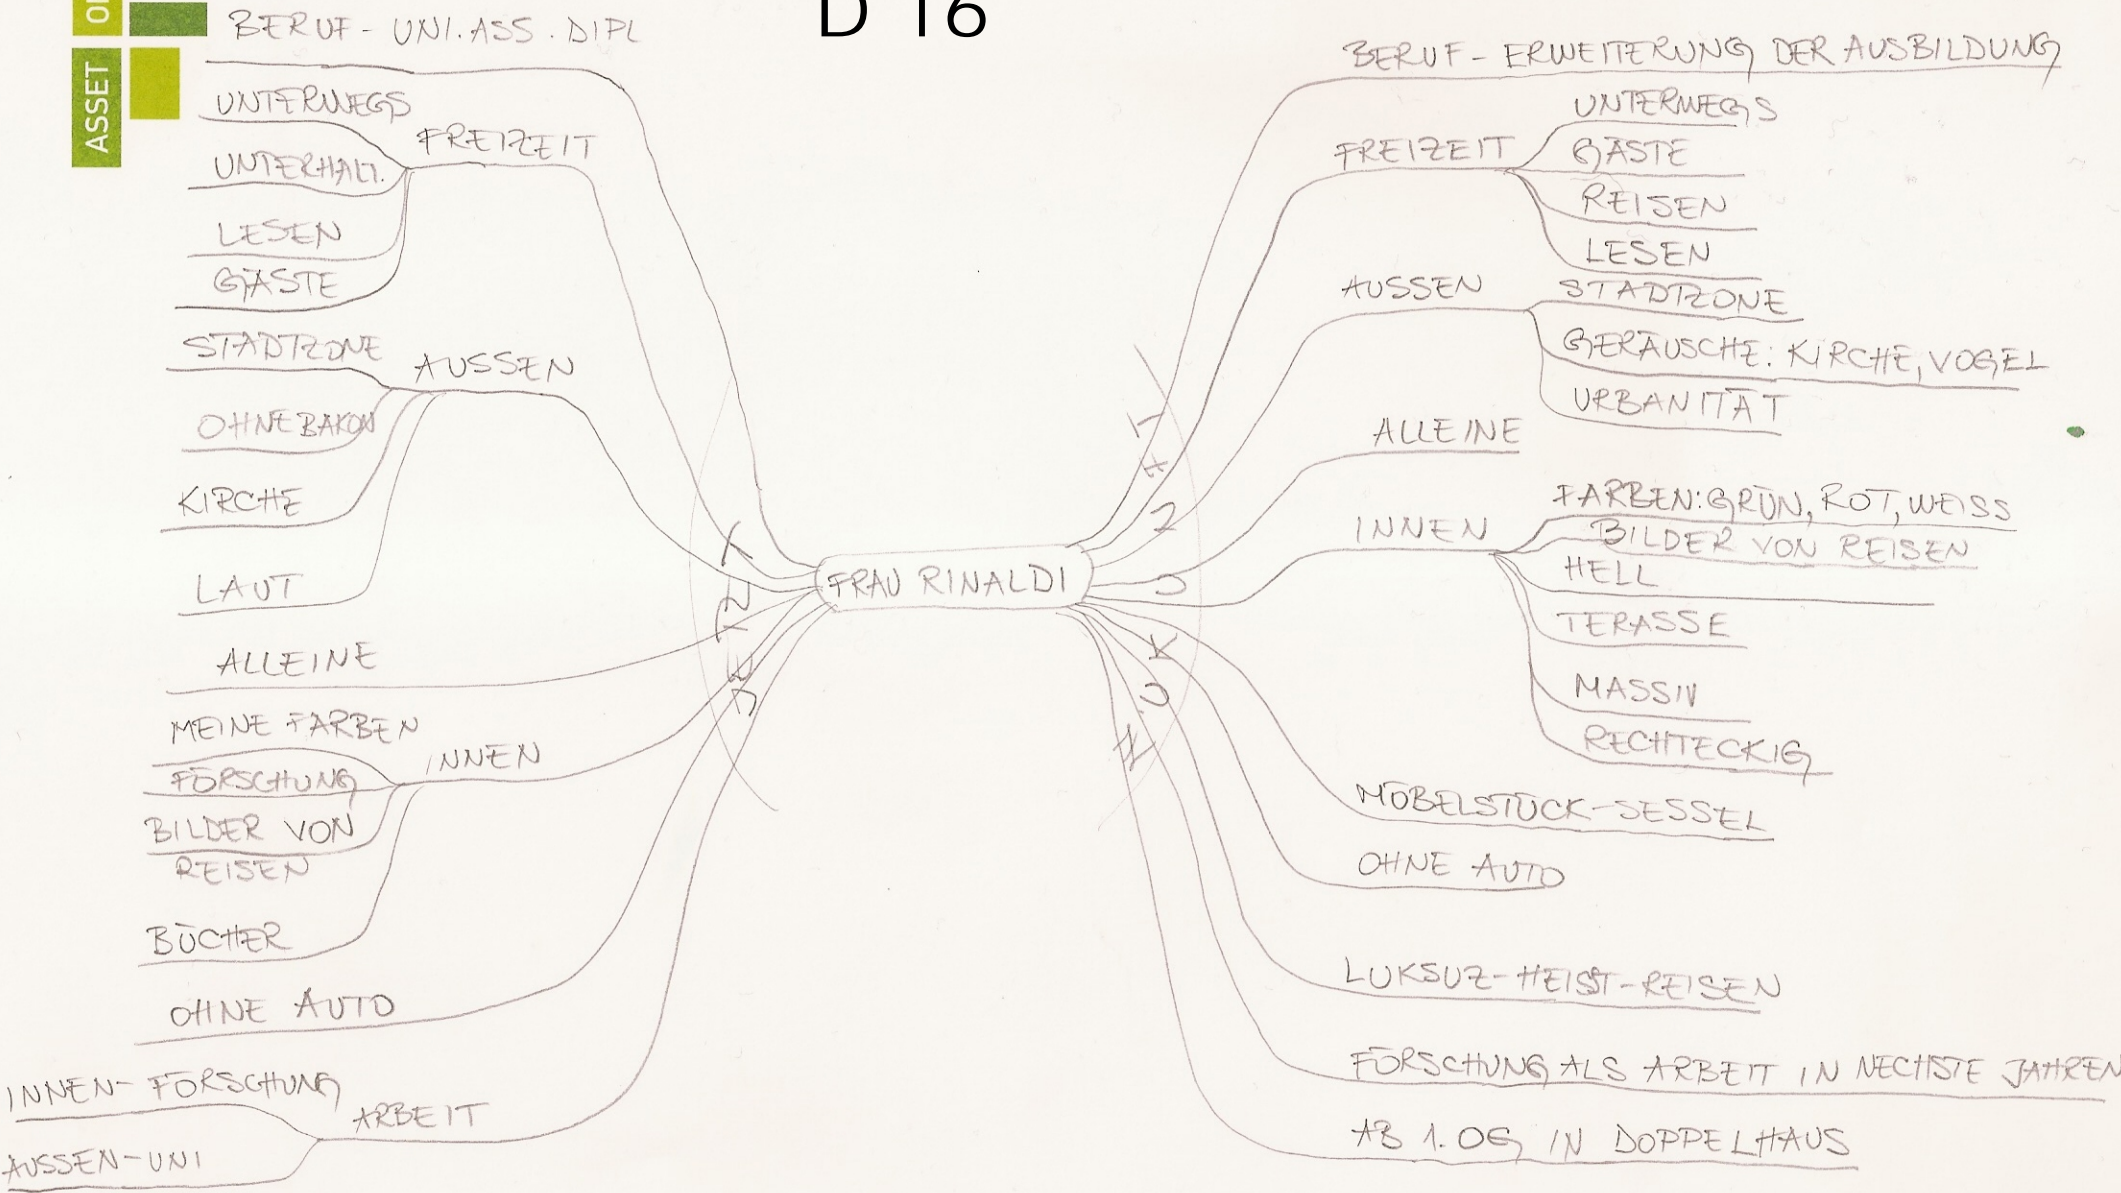 D 16
ASSET
BERUF - UNI. ASS. DIPL
UNTERWEGS
FREIZEIT
UNTERHALT.
LESEN
GÄSTE
STADTZONE
AUSSEN
OHNE BAKON
KIRCHE
LAUT
ALLEINE
MEINE FARBEN
INNEN
FORSCHUNG
BILDER VON
REISEN
BÜCHER
OHNE AUTO
INNEN - FORSCHUNG
ARBEIT
AUSSEN - UNI
JETZT
FRAU RINALDI
ZUKUNFT
BERUF - ERWEITERUNG DER AUSBILDUNG
UNTERWEGS
FREIZEIT
GÄSTE
REISEN
LESEN
AUSSEN
STADTZONE
GERÄUSCHE: KIRCHE, VOGEL
URBANITÄT
ALLEINE
FARBEN: GRÜN, ROT, WEISS
INNEN
BILDER VON REISEN
HELL
TERASSE
MASSIV
RECHTECKIG
MÖBELSTÜCK - SESSEL
OHNE AUTO
LUKSUZ - HEISST - REISEN
FORSCHUNG ALS ARBEIT IN NECHSTE JAHREN
AB 1. OG IN DOPPELHAUS